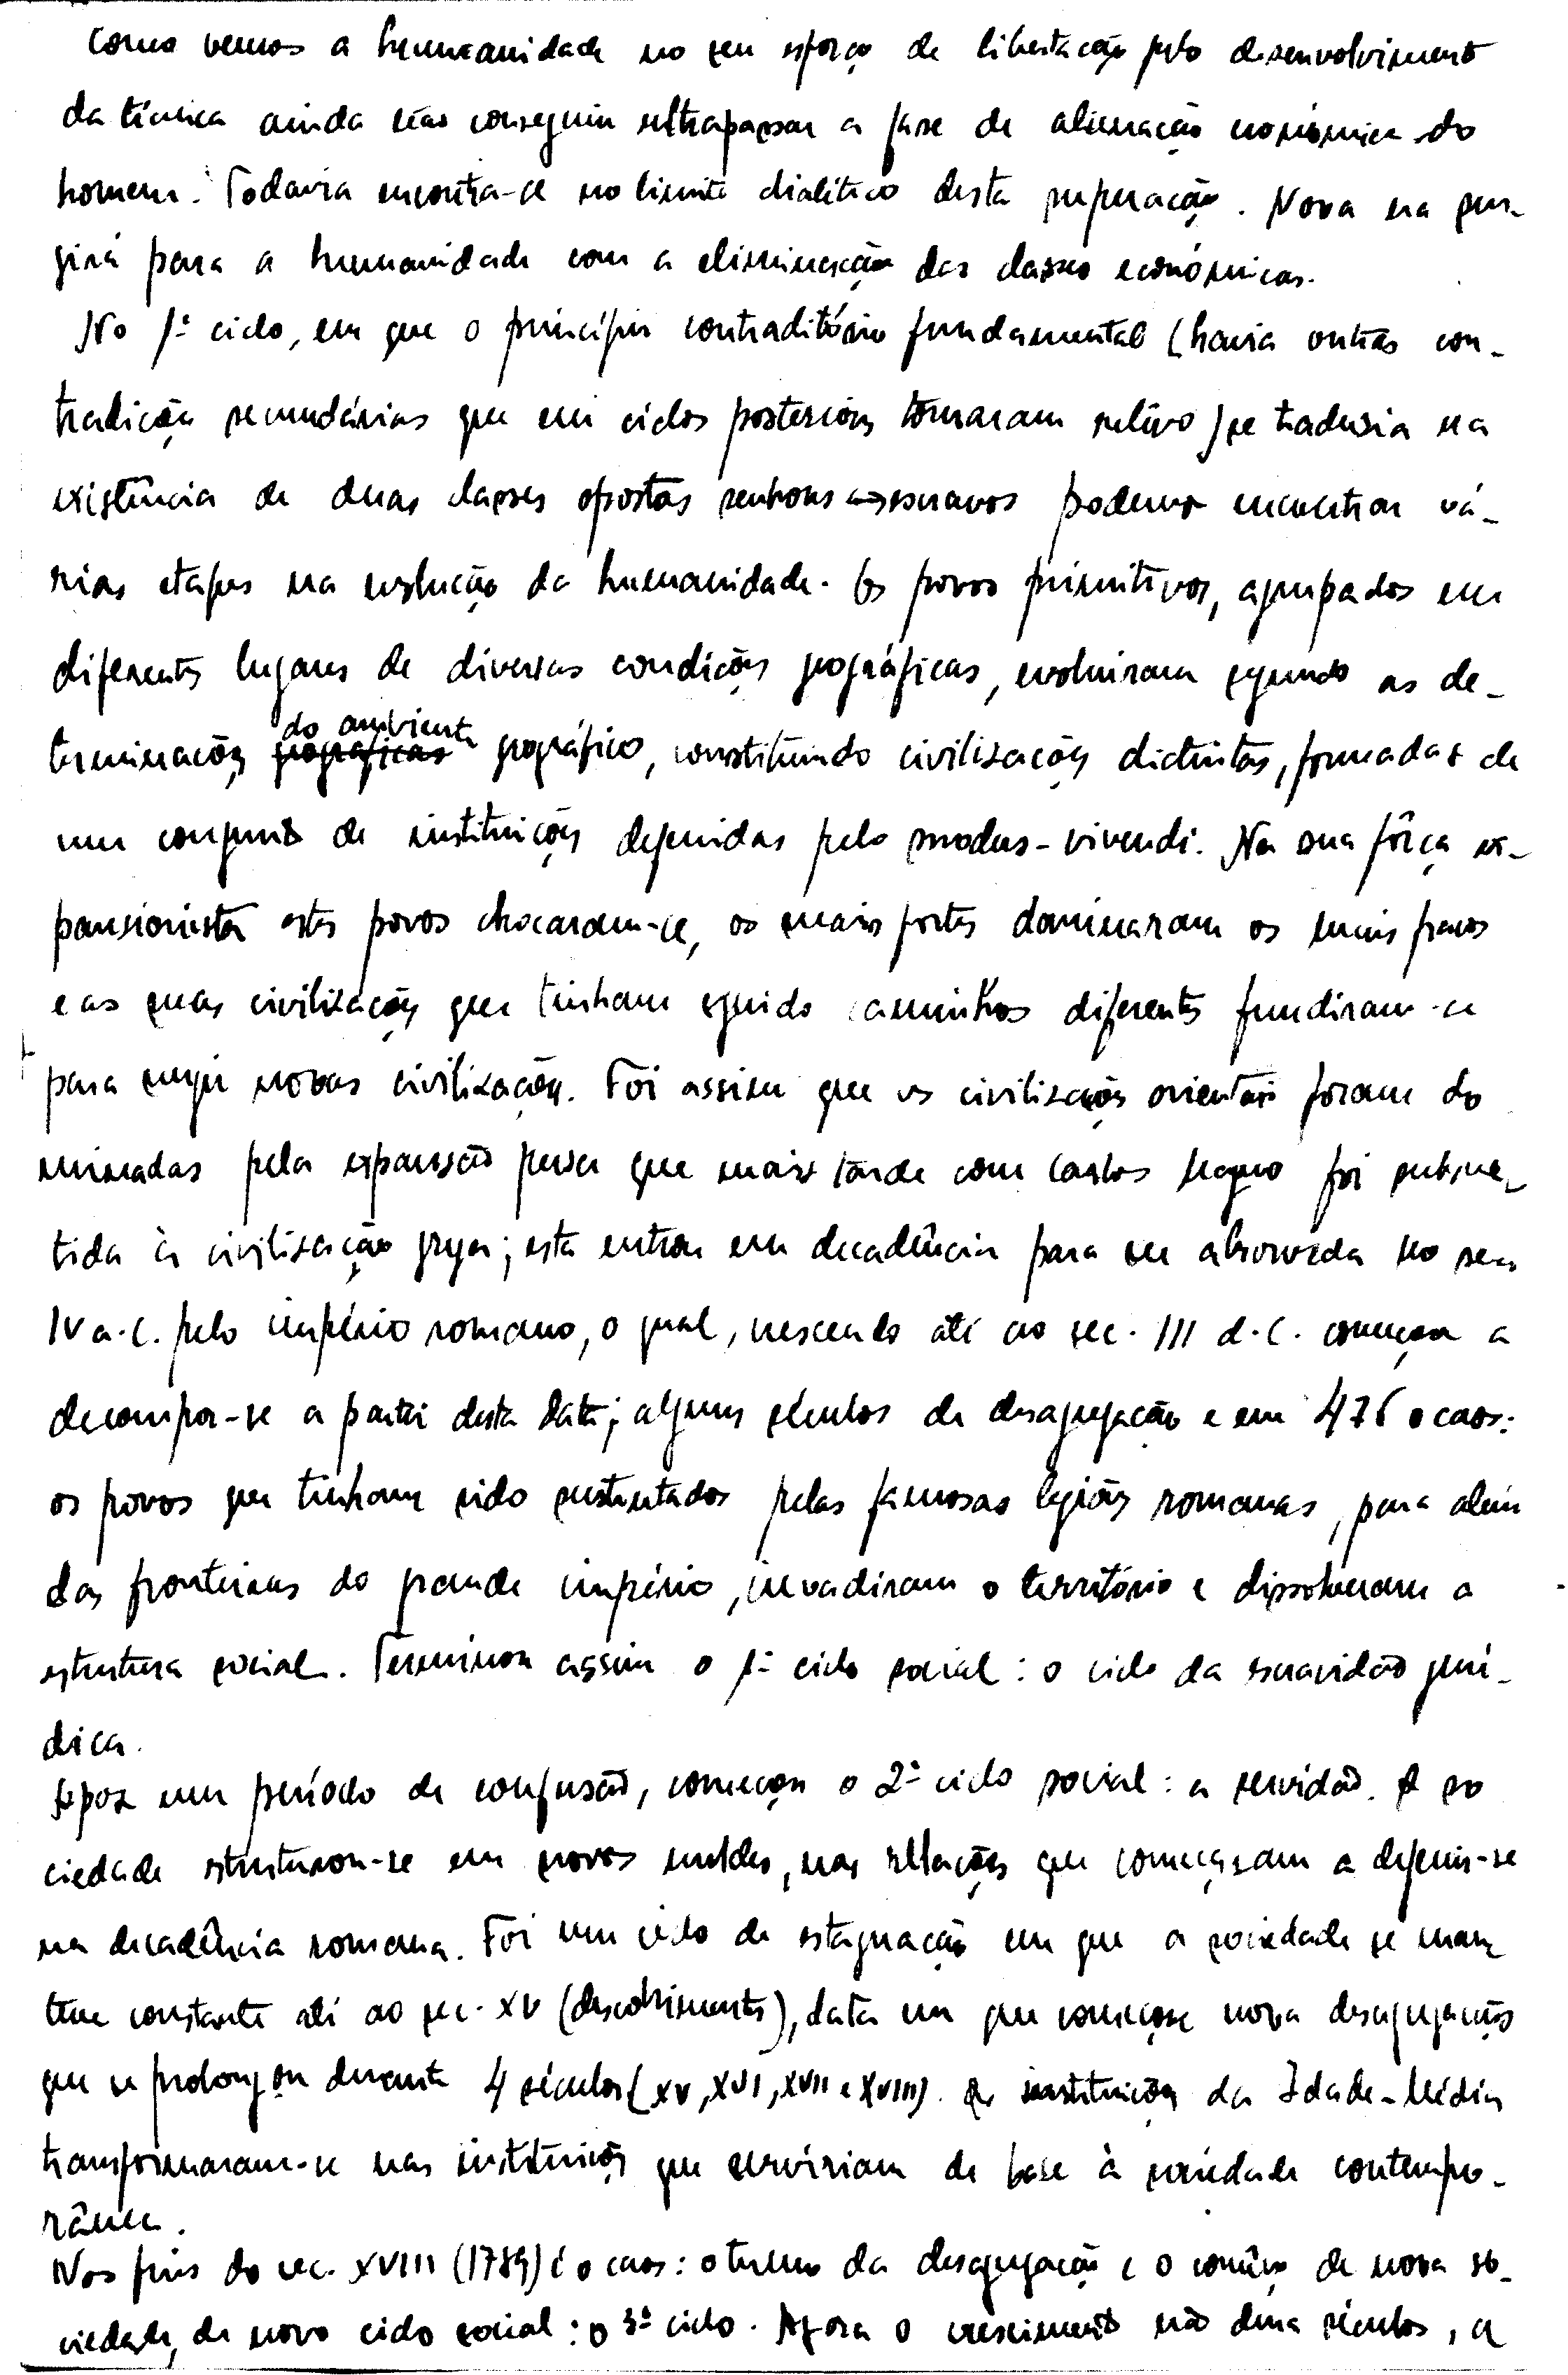 Como vemos a humanidade no seu esforço de libertação pelo desenvolvimento
da técnica ainda não conseguiu ultrapassar a fase de alienação económica do
homem. Todavia encontra-se no limite dialético desta superação. Nova era sur-
girá para a humanidade com a eliminação das classes económicas.
No 1º ciclo, em que o princípio contraditório fundamental (havia outras con-
tradições secundárias que em ciclos posteriores tomaram relêvo) se traduzia na
existência de duas classes opostas senhores ↔ escravos podemos encontrar vá-
rias etapas na evolução da humanidade. Os povos primitivos, agrupados em
diferentes lugares de diversas condições geográficas, evoluiram segundo as de-
terminações do ambiente geográfico, constituindo civilizações distintas, formadas de
um conjunto de instituições definidas pelo modus-vivendi. Na sua fôrça ex-
pansionista estes povos chocaram-se, os mais fortes dominaram os mais fracos
e as suas civilizações que tinham seguido caminhos diferentes fundiram-se
para surgir novas civilizações. Foi assim que as civilizações orientais foram do
minadas pela expansão persa que mais tarde com Carlos Magno foi subme-
tida à civilização grega; esta entrou em decadência para ser absorvida no sec.
IV a.C. pelo império romano, o qual, crescendo até ao sec. III d.C. começou a
decompor-se a partir desta data; alguns séculos de desagregação e em 476 o caos:
os povos que tinham sido sustentados pelas famosas legiões romanas, para além
das fronteiras do grande império, invadiram o território e dissolveram a
estrutura social. Terminou assim o 1º ciclo social: o ciclo da escravidão jurí-
dica.
Após um período de confusão, começou o 2º ciclo social: a servidão. A so
ciedade estruturou-se em novos moldes, nas relações que começaram a definir-se
na decadência romana. Foi um ciclo de estagnação em que a sociedade se man
teve constante até ao sec. XV (descobrimentos), data em que começou nova desagregação
que se prolongou durante 4 séculos (XV, XVI, XVII e XVIII). As instituições da Idade-Média
transformaram-se nas instituições que serviriam de base à sociedade contempo-
rânea.
Nos fins do sec. XVIII (1789) é o caos: o termo da desagregação e o comêço de nova so-
ciedade, de novo ciclo social: o 3º ciclo. Agora o crescimento não dura séculos, a